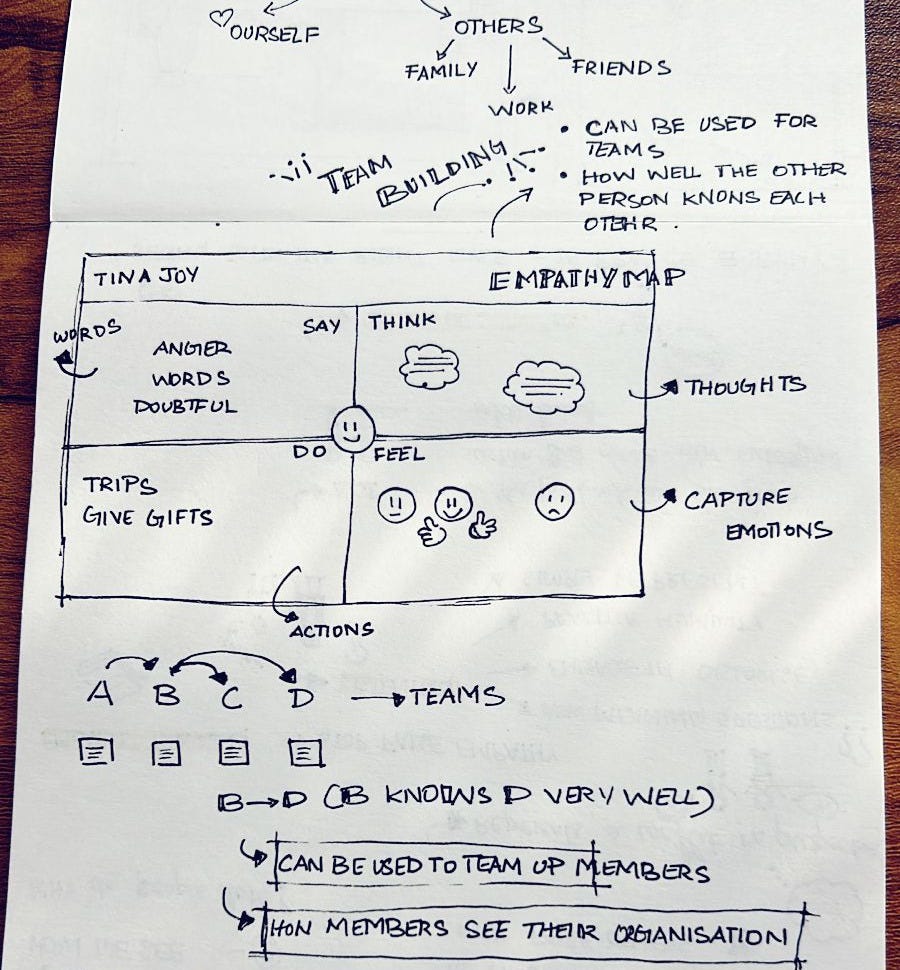 OURSELF
OTHERS
FAMILY
FRIENDS
WORK
TEAM BUILDING
• CAN BE USED FOR
TEAMS
• HOW WELL THE OTHER
PERSON KNONS EACH
OTEHR.
TINA JOY
EMPATHY MAP
WORDS
SAY
THINK
ANGIER
WORDS
DOUBTFUL
THOUGHTS
DO
FEEL
TRIPS
GIVE GIFTS
CAPTURE
EMOTIONS
ACTIONS
A B C D → TEAMS
B → D (B KNOWS D VERY WELL)
CAN BE USED TO TEAM UP MEMBERS
HOW MEMBERS SEE THEIR ORGANISATION